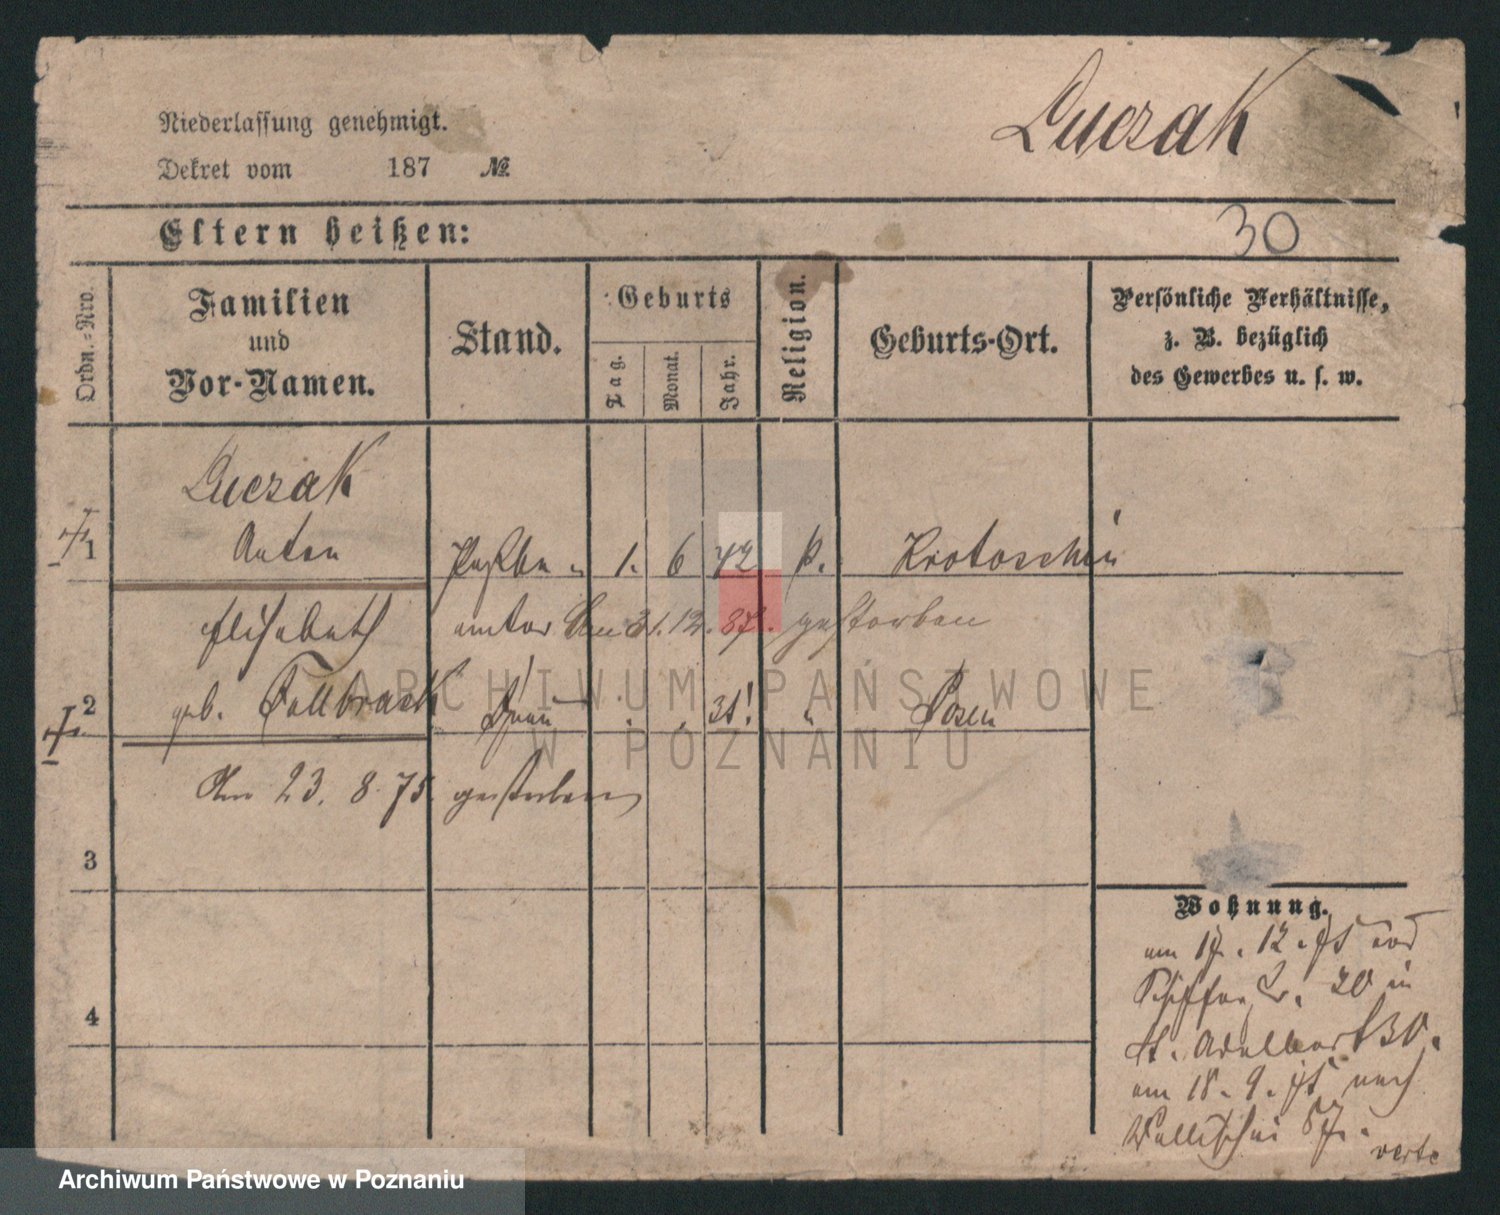 Luczak
Niederlassung genehmigt.
Dekret vom 187 №
30
Eltern heißen:
Ordn.-Nro.
Familien
und
Vor-Namen.
Stand.
Geburts
Tag.
Monat.
Jahr.
Religion.
Geburts-Ort.
Persönliche Verhältnisse,
z. B. bezüglich
des Gewerbes u. s. w.
Luczak
1 Anton 1. 6 42 k. Krotoschin
Elisabeth
am 31. 12. 87. gestorben
2 geb. Fallbrack Frau 31! " Posen
Am 23. 8. 75. gestorben
3
4
Wohnung.
am 17. 12. 75 von
20 in
St. Adalbert 30.
am 18. 9. 75 nach
Wallischei 87.
verte
ARCHIWUM PAŃSTWOWE
W POZNANIU
Archiwum Państwowe w Poznaniu